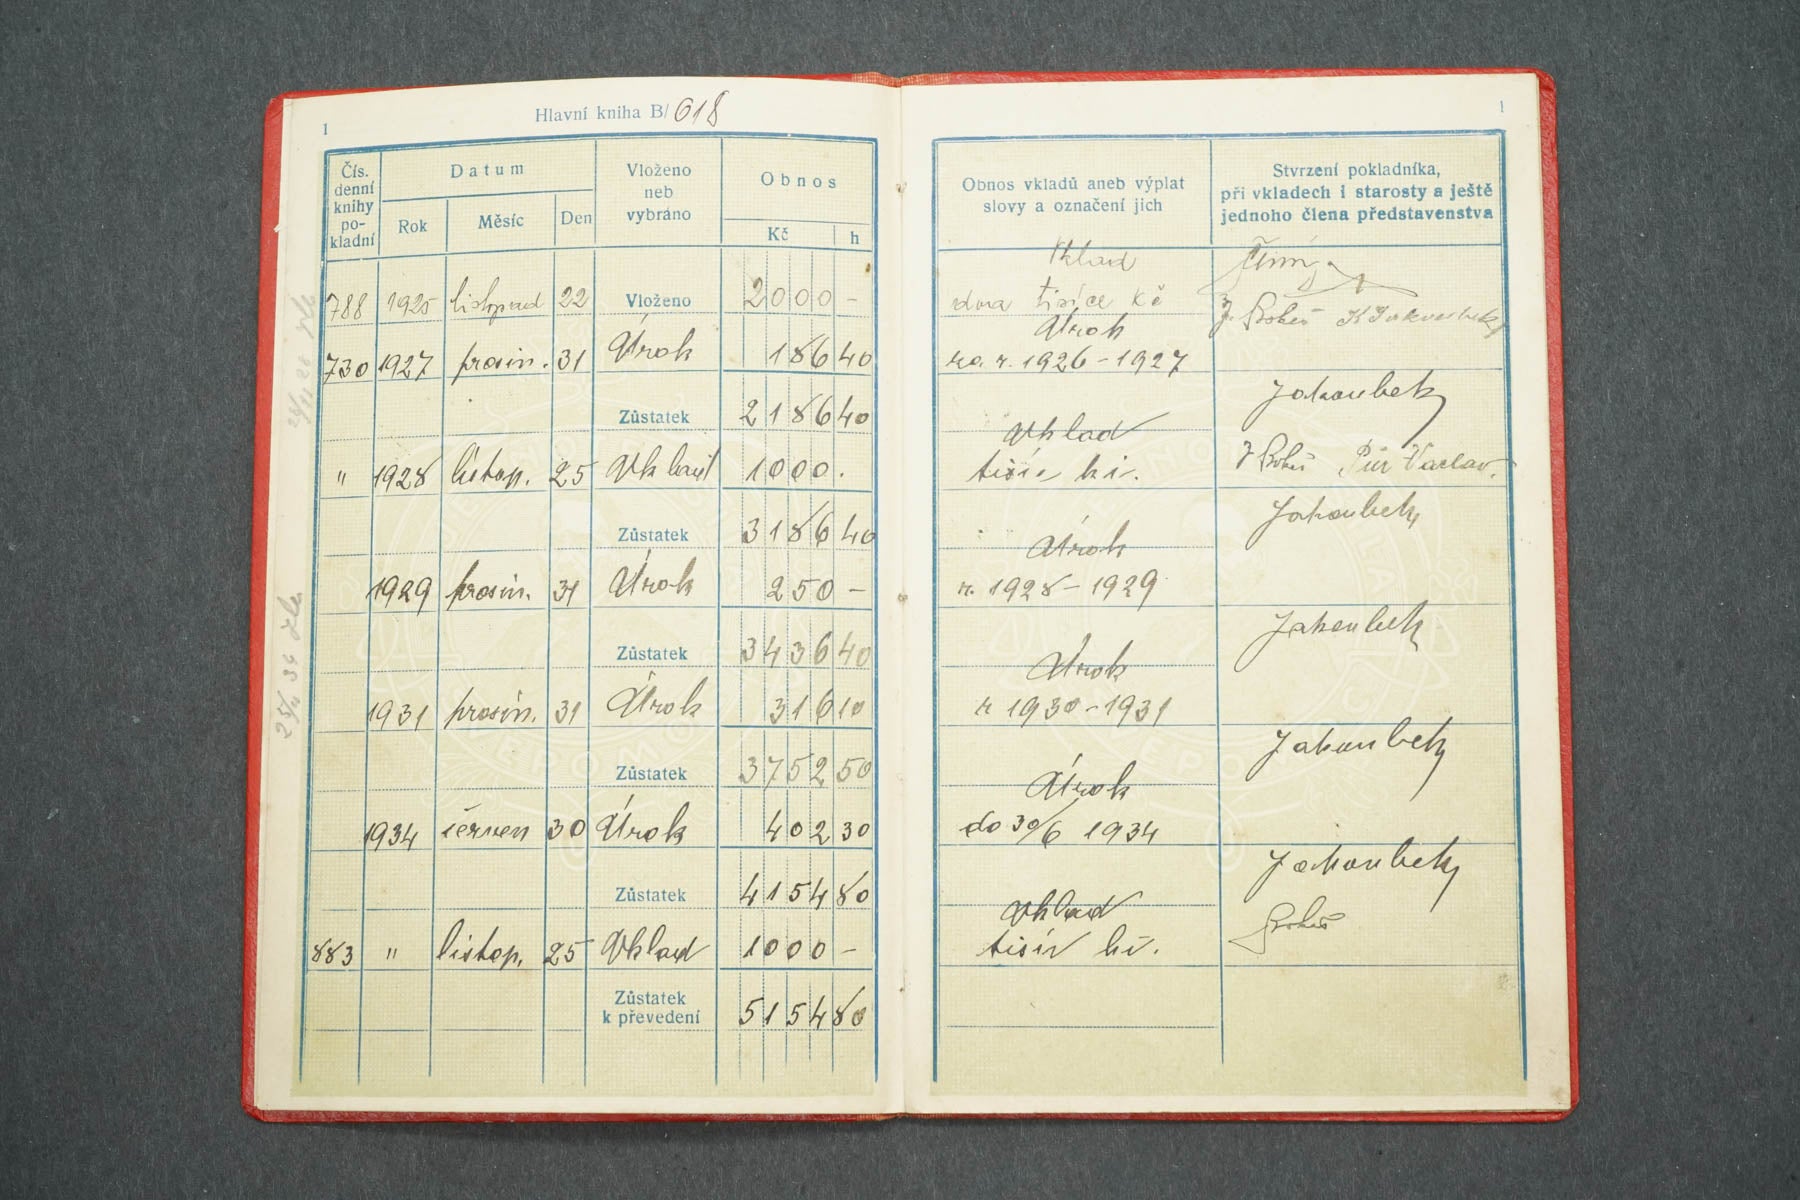 1
Hlavní kniha B/ 618
Čís. denní knihy po- kladní
Datum
Rok
Měsíc
Den
Vloženo neb vybráno
Obnos
Kč
h
788 1925 listopad 22 Vloženo 2000 –
730 1927 prosin. 31 Úrok 186 40
Zůstatek 2186 40
" 1928 listop. 25 Vklad 1000 .
Zůstatek 3186 40
1929 prosin. 31 Úrok 250 –
Zůstatek 3436 40
1931 prosin. 31 Úrok 316 10
Zůstatek 3752 50
1934 červen 30 Úrok 402 30
Zůstatek 4154 80
883 " listop. 25 Vklad 1000 –
Zůstatek
k převedení 5154 80
1
Obnos vkladů aneb výplat
slovy a označení jich
Stvrzení pokladníka,
při vkladech i starosty a ještě
jednoho člena představenstva
Vklad
dva tisíce Kč
Úrok
za. r. 1926 – 1927
Jakoubek
Vklad
tisíc kč.
Václav
Jakoubek
Úrok
r. 1928 – 1929
Jakoubek
Úrok
r 1930 – 1931
Jakoubek
Úrok
do 30/6 1934
Jakoubek
Vklad
tisíc kč.